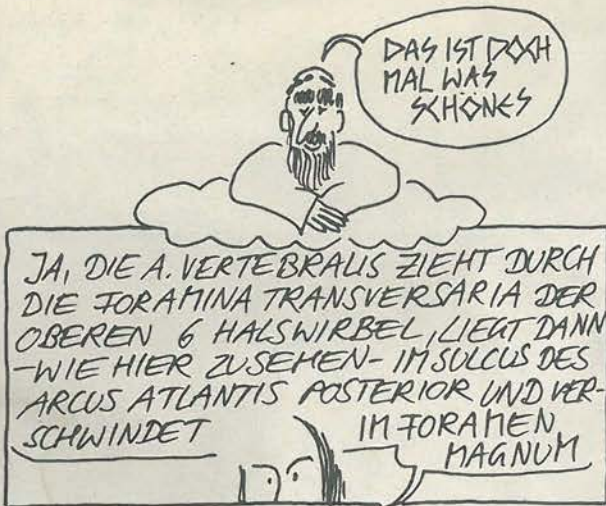 DAS IST DOCH
MAL WAS
SCHÖNES
JA, DIE A. VERTEBRALIS ZIEHT DURCH
DIE FORAMINA TRANSVERSARIA DER
OBEREN 6 HALSWIRBEL, LIEGT DANN
-WIE HIER ZUSEHEN- IM SULCUS DES
ARCUS ATLANTIS POSTERIOR UND VER-
SCHWINDET IM FORAMEN
MAGNUM